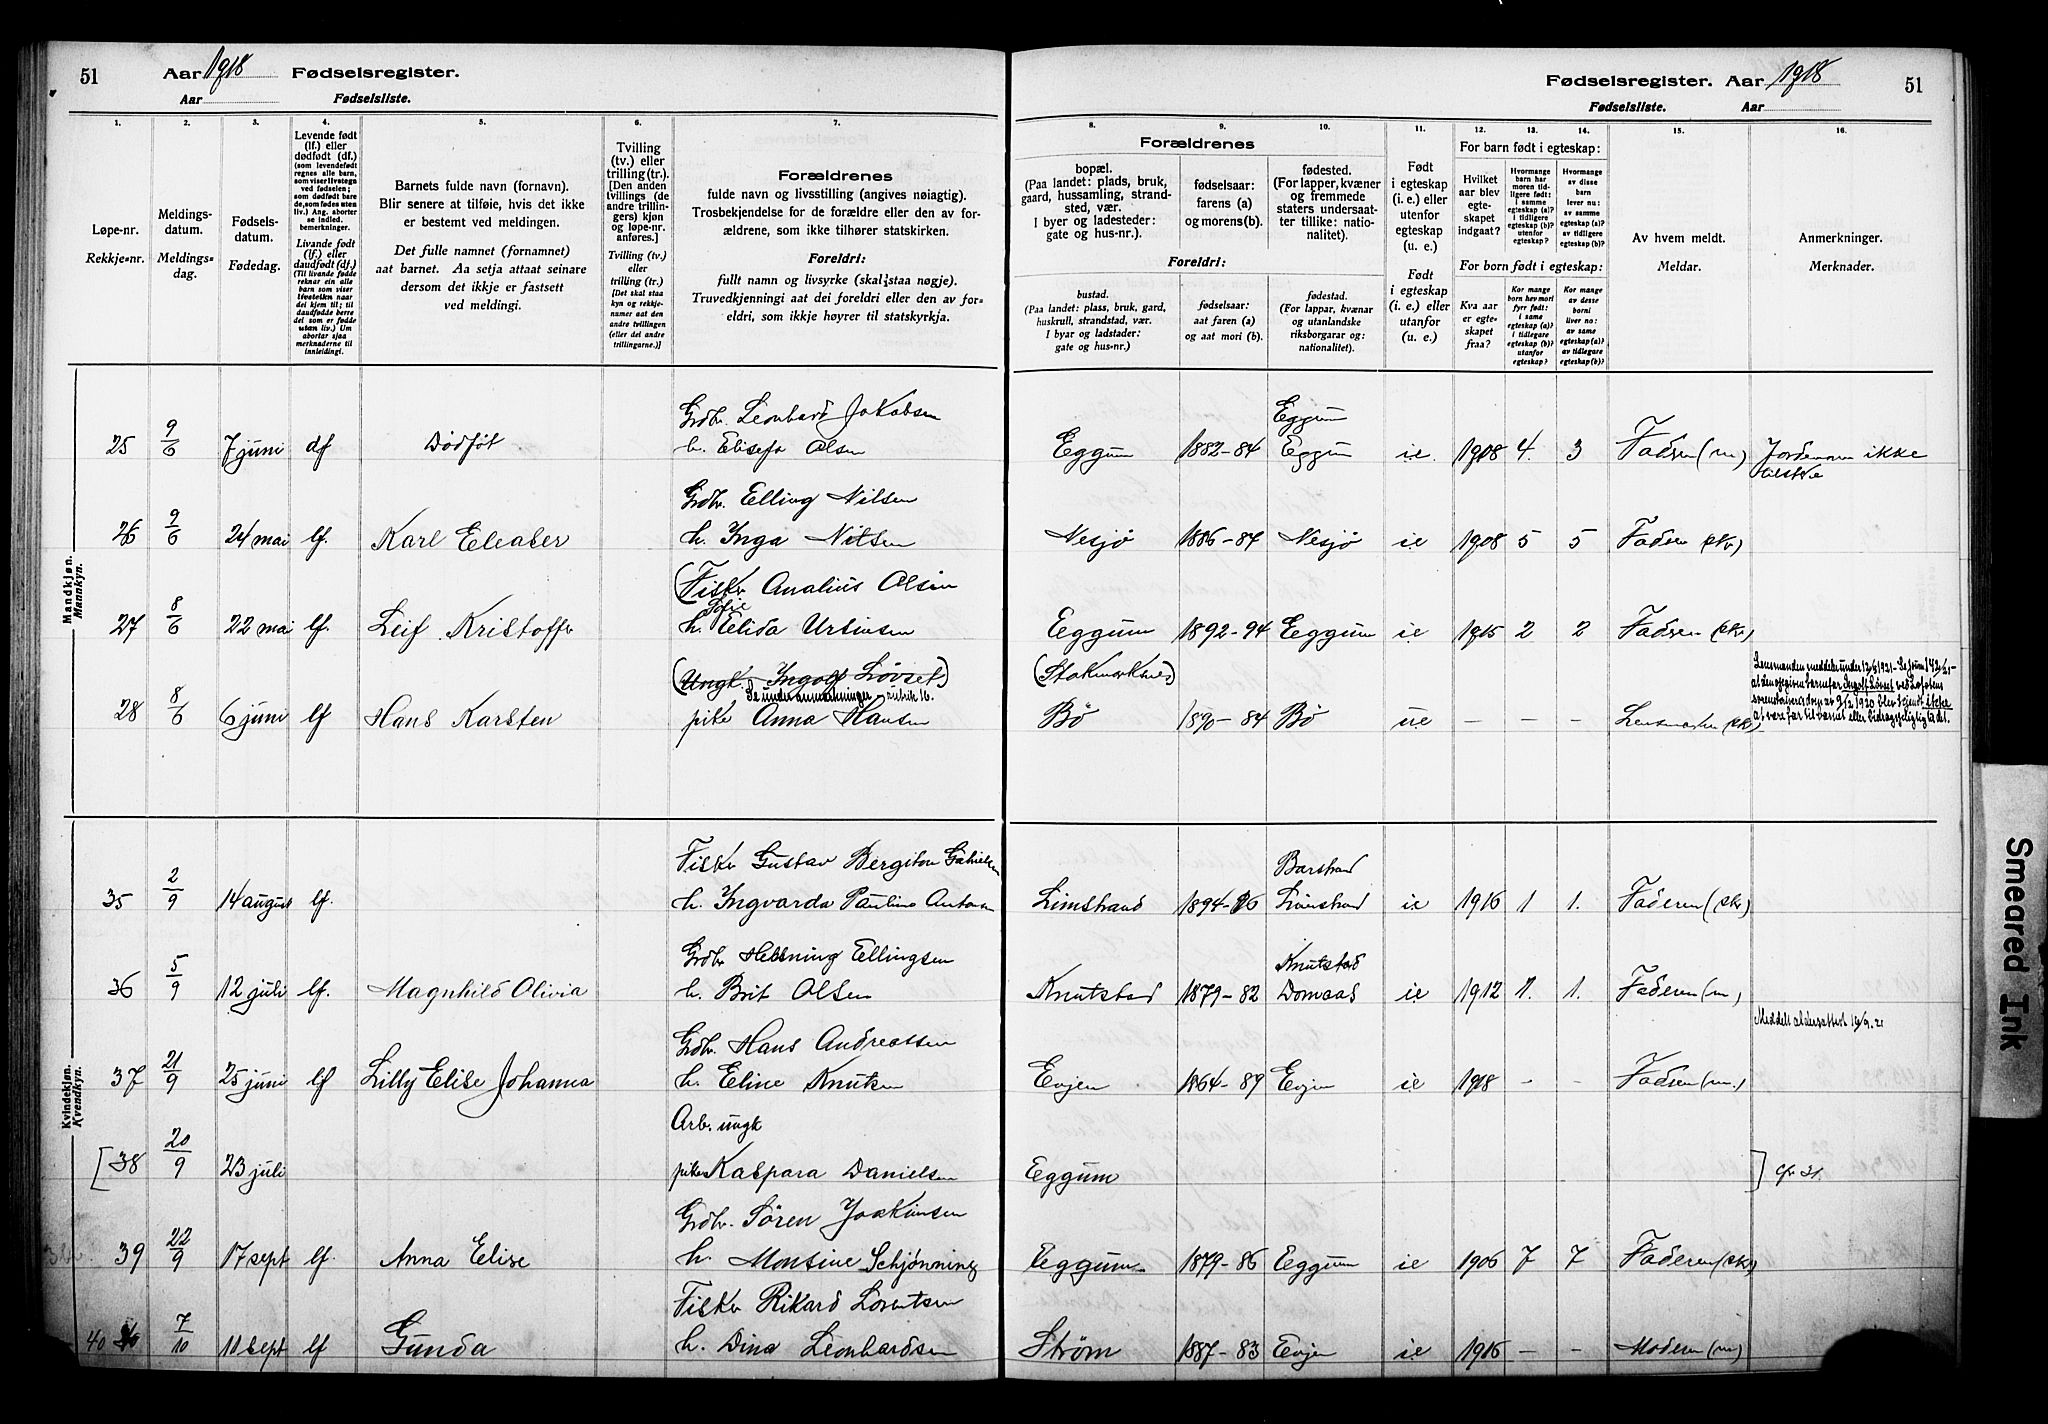 51 Aar 1918 Fødselsregister.
Aar Fødselsliste.
Fødselsregister. Aar 1918 51
Fødselsliste. Aar
1. 2. 3. 4. 5. 6. 7.
Løpe-nr.
Rekkje-nr.
Meldings-
datum.
Meldings-
dag.
Fødsels-
datum.
Fødedag.
Levende født
(lf.) eller
dødfødt (df.)
(som levendefødt
regnes alle barn,
som viser livstegn
ved fødselen;
som dødfødt bare
de, som fødes uten
liv.) Ang. aborter
se indled.
bemerkninger.
Livande født
(lf.) eller
daudfødt (df.)
(Til livande fødde
reknar ein alle
barn som viser
livsteikn naar
dei kjem til; til
daudfødde berre
dei som er fødde
utan liv.) Um
abortar sjaa
merknaderne til
innleidingi.
Barnets fulde navn (fornavn).
Blir senere at tilføie, hvis det ikke
er bestemt ved meldingen.
Det fulle namnet (fornamnet)
aat barnet. Aa setja attaat seinare
dersom det ikkje er fastsett
ved meldingi.
Tvilling
(tv.) eller
trilling (tr.)
[Den anden
tvillings (de
andre trillin-
gers) kjøn
og løpe-nr.
anføres.]
Tvilling (tv.)
eller
trilling (tr.)
[Det skal staa
kyn og rekkje-
numer aat den
andre tvillingen
(eller dei andre
trillingarne.)]
Forældrenes
fulde navn og livsstilling (angives nøiagtig).
Trosbekjendelse for de forældre eller den av for-
ældrene, som ikke tilhører statskirken.
Foreldri:
fullt namn og livsyrke (skal staa nøgje).
Truvedkjenningi aat dei foreldri eller den av for-
eldri, som ikkje høyrer til statskyrkja.
8. 9. 10. 11. 12. 13. 14. 15. 16.
Forældrenes
bopæl.
(Paa landet: plads, bruk,
gaard, hussamling, strand-
sted, vær.
I byer og ladesteder:
gate og hus-nr.).
fødselsaar:
farens (a)
og morens (b).
fødested.
(For lapper, kvæner
og fremmede
staters undersaat-
ter tillike: natio-
nalitet).
Foreldri:
bustad.
(Paa landet: plass, bruk, gard,
huskrull, strandstad, vær.
I byar og ladstader:
gate og hus-nr.)
fødselsaar:
aat faren (a)
og aat mori (b).
fødestad.
(For lappar, kvænar
og utanlandske
riksborgarar og:
nationalitet).
Født
i egteskap
(i. e.) eller
utenfor
egteskap
(u. e.)
Født
i egteskap
(i. e.) eller
utanfor
(u. e.)
For barn født i egteskap:
Hvilket
aar blev
egte-
skapet
indgaat?
Hvormange
barn har
moren tid-
ligere født:
i samme
egteskap (a)?
i tidligere
egteskap (b)?
utenfor
egteskap?
Hvormange
av disse
barn
lever nu:
av samme
egteskap (a)?
av tidligere
egteskap (b)?
For born født i egteskap:
Kva aar
er egte-
skapet
fraa?
Kor mange
born hev mori
fyrr født:
i same
egteskap (a)?
i tidlegare
egteskap (b)?
utanfor
egteskap?
Kor mange
av desse
borni
liver no:
av same
egteskap (a)?
av tidlegare
egteskap (b)?
Av hvem meldt.
Meldar.
Anmerkninger.
Merknader.
Mandkjøn.
Mannkyn.
Grdbr. Leonhard Jakobsen Eggum
25 9/6 7 juni df Dødføt h. Elisefa Olsen Eggum 1882-84 Eggum i.e. 1908 4. 3 Faderen (m) Jordemoren ikke
tilstede
Grdbr. Elling Nilsen
26 9/6 24 mai lf. Karl Eleaser h. Inga Nilsen Nesjø 1886-87 Nesjø i.e 1908 5 5 Faderen (skr)
(Fisker Analius Olsen
27 8/6 22 mai lf. Leif Kristoffer h. Sofie Elida Ursinsen Eggum 1892-94 Eggum i.e 1915 2 2 Faderen (skr)
(Ungk. Ingolf Lövset) (Stokmarknes)
Se under anmerkninger rubrik 16.
28 8/6 6 juni lf Hans Karsten pike Anna Hansen Bö 1890-84 Bö ue - - - Lensmanden (skr)
Kvindekjøn.
Kvendkyn.
Fisker Gustav Bergiton Gabrielsen Barstrand
35 2/9 14 august lf. h. Ingvarda Pauline Antonsen Limstrand 1894-96 Limstrand i.e 1916 1 1. Faderen (skr)
Grdbr Henning Ellingsen Knutstad
36 5/9 12 juli lf. Magnhild Olivia h. Brit Olsen Knutstad 1879-82 Domaas i.e 1912 1. 1. Faderen (m)
Meddelt aldersattest 16/9. 21
Grdbr. Hans Andreassen
37 21/9 25 juni lf Lilly Elise Johanna h. Eline Knutsen Evjen 1864-89 Evjen i.e 1918 - - Faderen (m.)
Arb. ungk
[38 20/9 23 juli piken Kaspara Danielsen Eggum ] cfr 31.
Grdbr. Sören Joakimsen
39 22/9 17 sept lf. Anna Elise h. Monsine Schjønning Eggum 1879-86 Eggum i.e 1906 7 7 Faderen (skr)
Fisker Rikard Lorentsen
40 7/10 10 sept lf Gunda h. Dina Leonhardsen Strøm 1887-83 Evjen i.e 1916 - - Moderen (m)
Smeared Ink